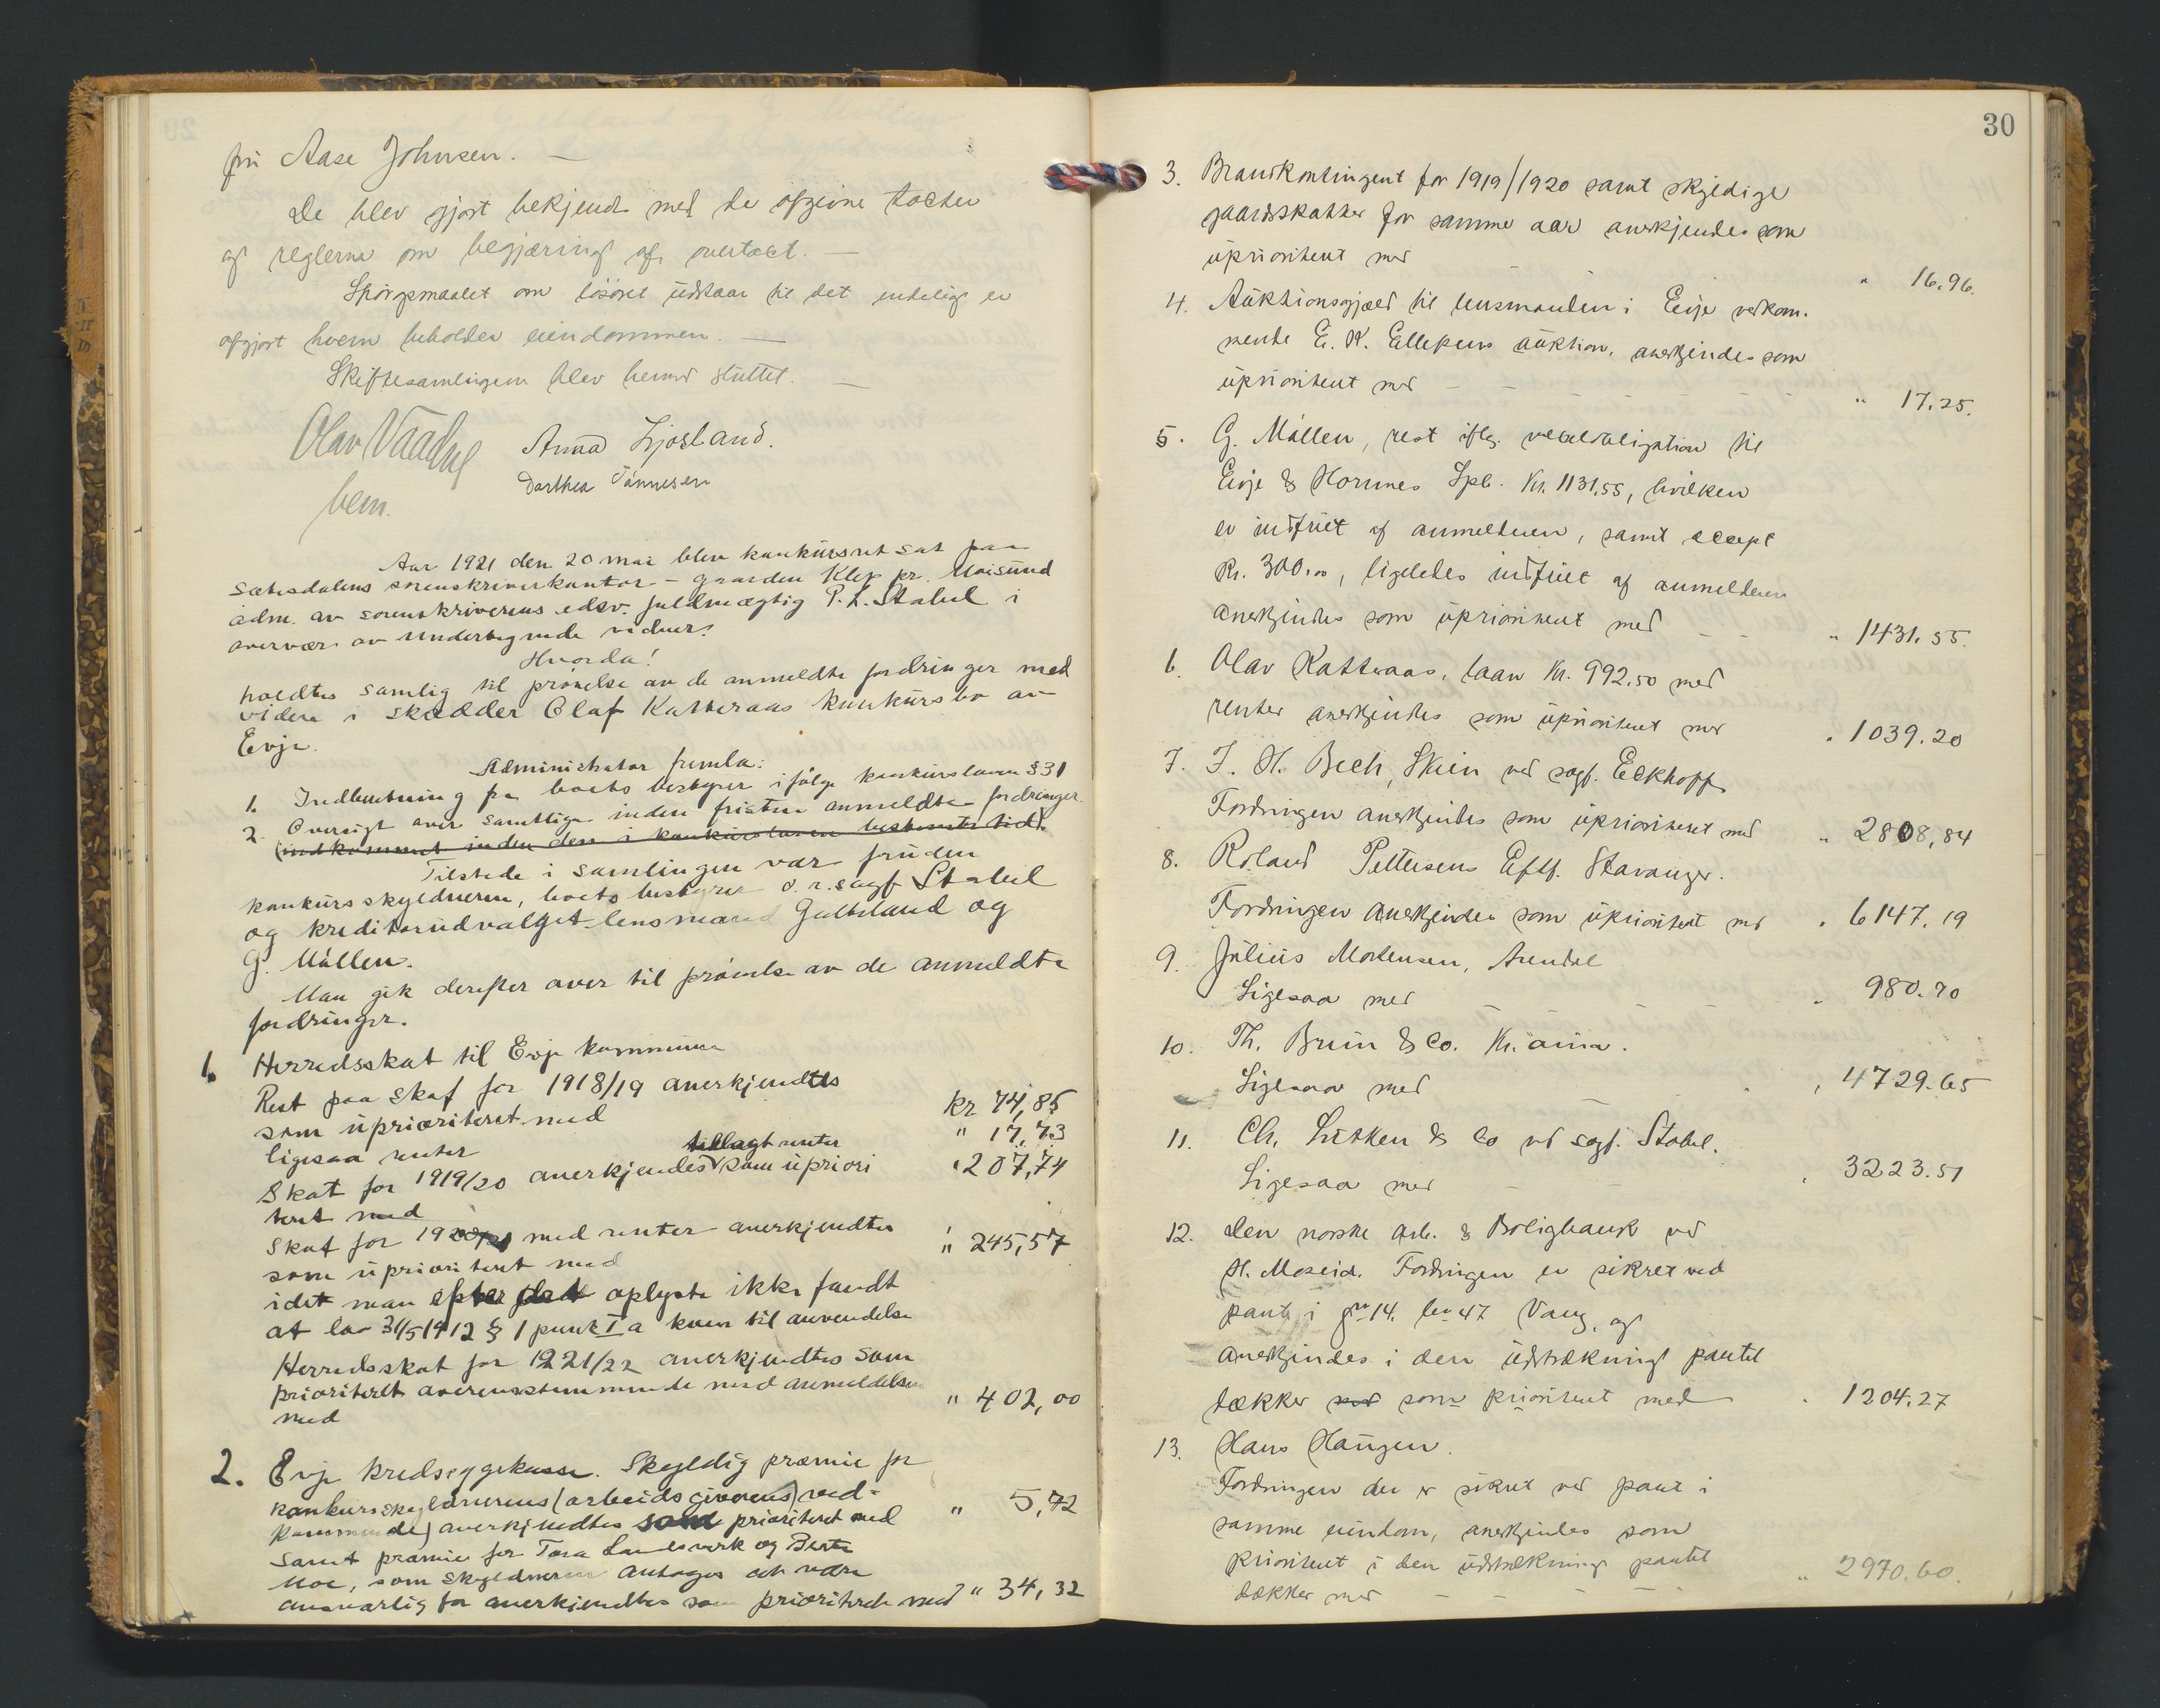 fru Aase Johnsen. —
De blev gjort bekjendt med de afgivne taxter
og reglerne om begjæring af overtaxt. —
Spörgsmaalet om lösöret udstaar til det endelig er
afgjort hvem beholder eiendommen. —
Skiftesamlingen blev hermed sluttet. —
Olav Vaadne
bem.
Anna Ljosland.
Dorthea Tönnesen
Aar 1921 den 20 mai blev konkursret sat paa
Sætesdalens sorenskriverkontor – gaarden Klep pr. Moisund
adm. av sorenskriverens edsv. fuldmægtig P. L. Stabel i
overvær av undertegnede vidner.
Hvorda!
holdtes samlig til prövelse av de anmeldte fordringer med
videre i skrædder Olaf Katteraas konkursbo av
Evje.
Administrator fremla:
1. Indberetning fra boets bestyrer ifölge konkursloven § 31
2. Oversigt over samtlige inden fristen anmeldte fordringer
(indkommet inden den i konkursloven bestemte tid).
Tilstede i samlingen var foruden
konkursskyldneren, boets bestyrer o.r.sagf Stabel
og kreditorudvalget – lensmand Galteland og
G. Möllen.
Man gik derefter over til prövelse av de anmeldte
fordringer.
1. Herredsskat til Evje kommune
Rest paa skat for 1918/19 anerkjendtes
som uprioriteret med kr 74,85
ligesaa renter " 17,73
tillagt renter
Skat for 1919/20 anerkjendes som upriori " 207,74
teret med
Skat for 1920/21 med renter anerkjendtes
som uprioriteret med " 245,57
idet man efter det oplyste ikke fandt
at lov 31/5 1912 § 1 punkt I a kom til anvendelse
Herredsskat for 1921/22 anerkjendtes som
prioriteret overensstemmende med anmeldelsen
med " 402,00
2. Evje kredssygekasse. Skyldig præmie for
konkursskyldnerens (arbeidsgiverens) ved-
kommende) anerkjendtes som prioriteret med " 5,72
samt præmie for Tora Landsverk og Berte
Moe, som skyldneren antages at være
ansvarlig for anerkjendtes som prioriteret med " 34,32
30
3. Brandkontingent for 1919/1920 samt skyldige
gaardsskatter for samme aar anerkjendes som
uprioriteret med — " 16.96.
4. Auktionsgjæld til lensmanden i Evje vedkom-
mende E. K. Ellefsens auktion, anerkjendes som
uprioriteret med — — " 17.25.
5. G. Möllen, rest iflg. vexelobligation til
Evje & Hornnes Spb. Kr. 1131,55, hvilken
er indfriet af anmelderen, samt accept
Kr. 300.00, ligeledes indfriet af anmelderen
anerkjendes som uprioriteret med — — " 1431.55.
6. Olav Katteraas, laan Kr. 992.50 med
renter anerkjendes som uprioriteret med " 1039.20
7. J. H. Bech, Skien ved sagf. Eckhoff
Fordringen anerkjendes som uprioriteret med " 2808,84
8. Roland Pettersens Eftf. Stavanger.
Fordringen anerkjendes som uprioriteret med " 6147.19
9. Julius Mortensen, Arendal
Ligesaa med — — — " 980.70
10. Th. Bruun & Co. Kr.ania.
Ligesaa med " 4729.65
11. Ch. Lütken & Co ved sagf. Stabel.
Ligesaa med — — " 3223.51
12. Den norske Arb. & Boligbank ved
H. Moseid. Fordringen er sikret ved
pant i gno 14. bno 47 Vang, og
anerkjendes i den udstrækning pantet
dækker med som prioriteret med " 1204.27
13. Hans Haugen.
Fordringen der er sikret ved pant i
samme eiendom, anerkjendes som
prioriteret i den udstrækning pantet
dækker med — — — " 2970.60.